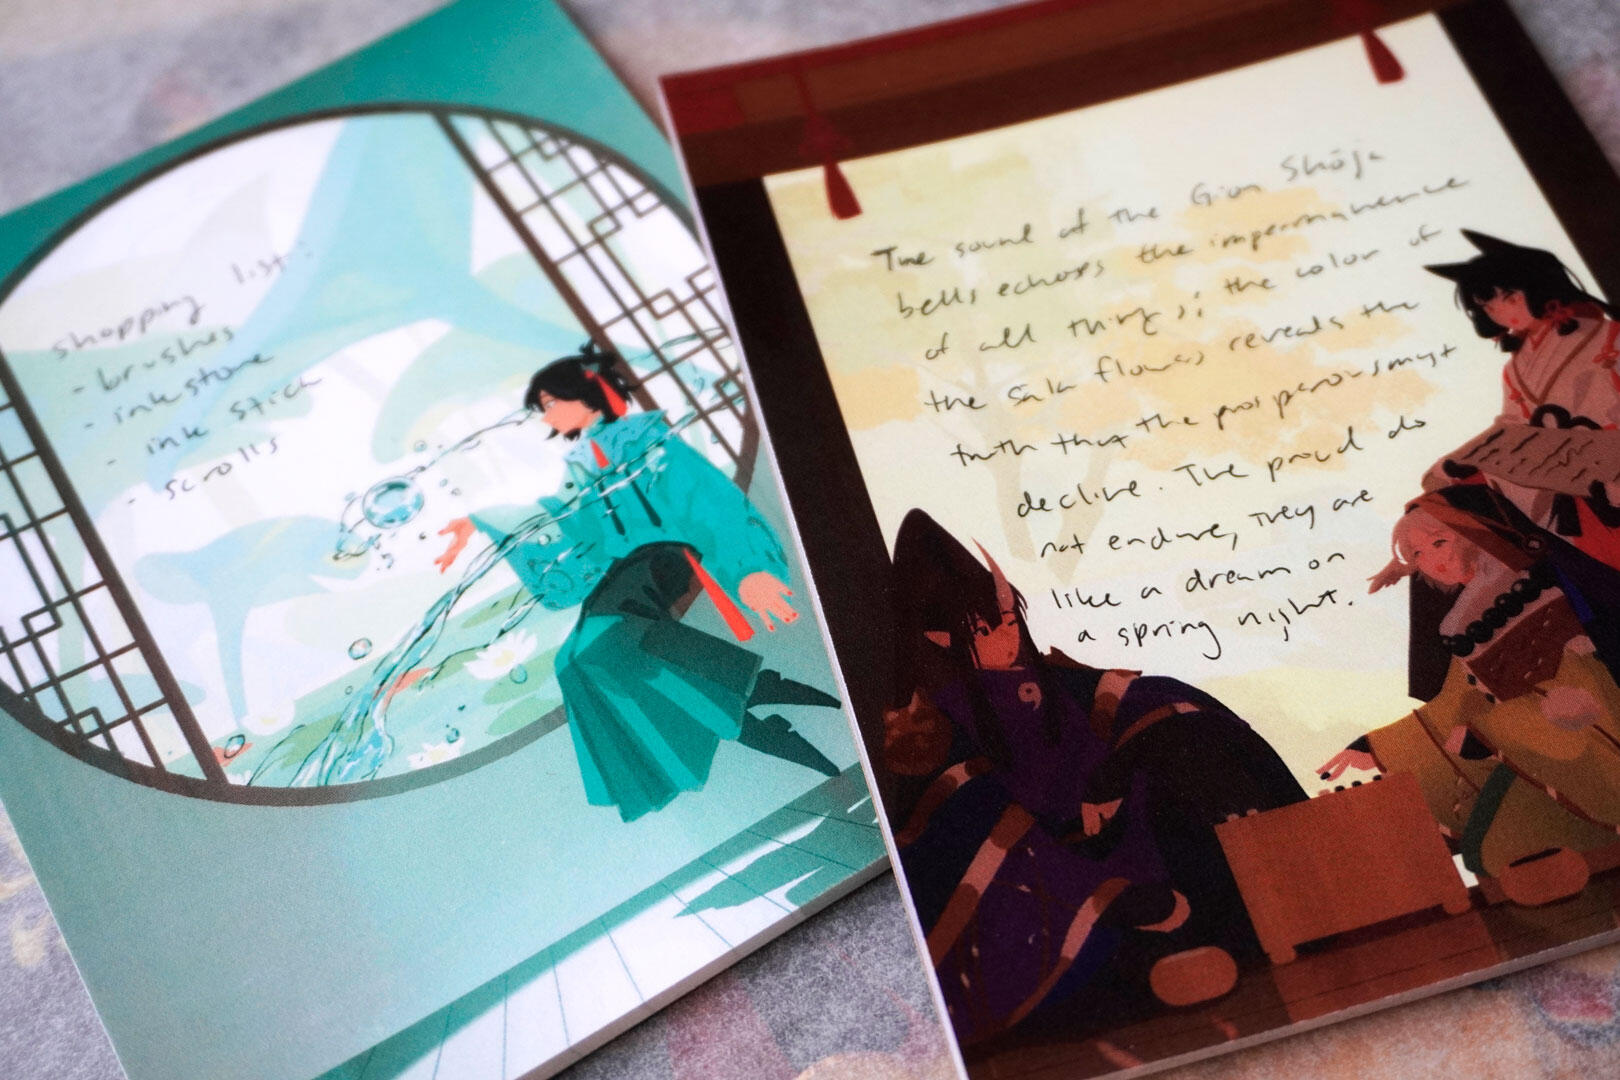 shopping list:
- brushes
- inkstone
- ink stick
- scrolls
The sound of the Gion Shōja
bells echoes the impermanence
of all things; the color of
the sāla flowers reveals the
truth that the prosperous must
decline. The proud do
not endure, they are
like a dream on
a spring night.